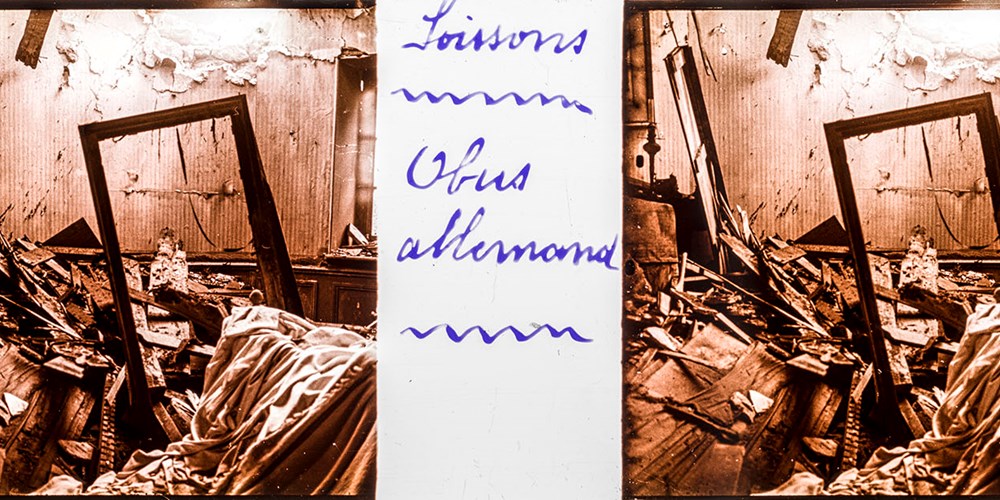 Soissons
Obus
allemand